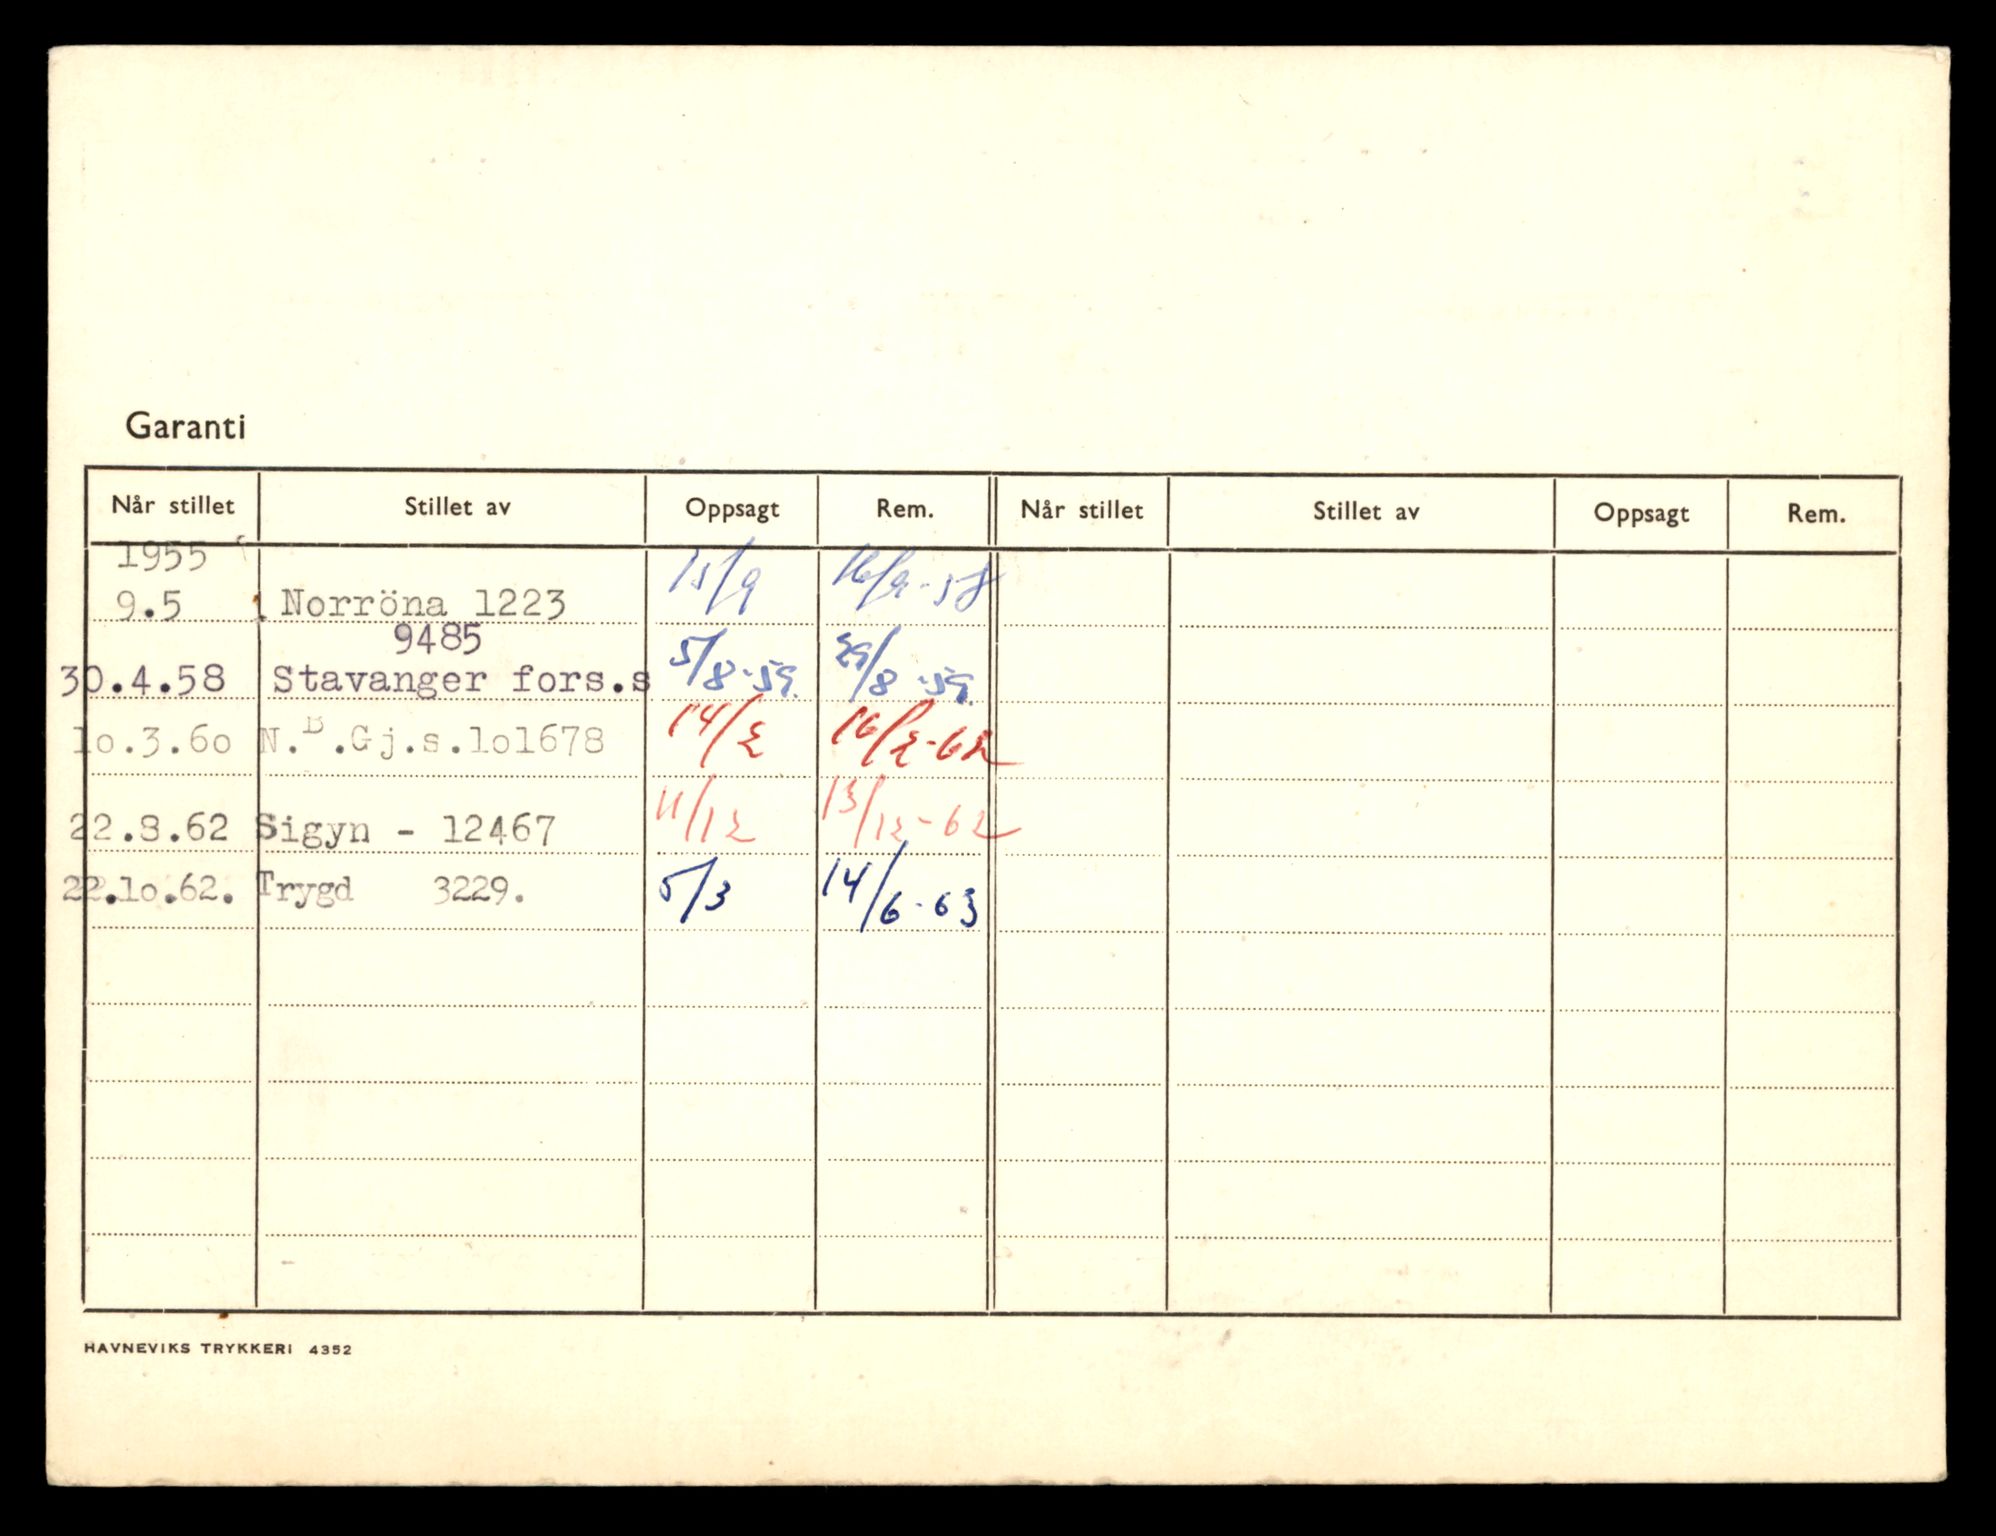 Garanti
Når stillet Stillet av Oppsagt Rem. Når stillet Stillet av Oppsagt Rem.
1955
9.5 Norröna 1223 15/9 16/9-58
9485
30.4.58 Stavanger fors.s 5/8-59. 29/8-59.
10.3.60 N.B.Gj.s.101678 14/2 16/2-62
22.8.62 Sigyn - 12467 11/12 13/12-62
22.10.62. Trygd 3229. 5/3 14/6-63
HAVNEVIKS TRYKKERI 4352